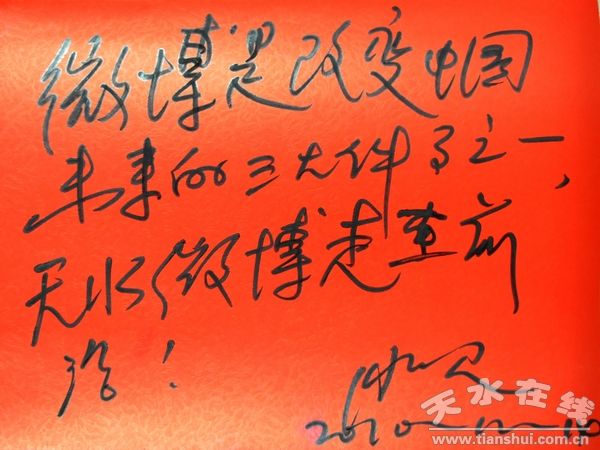 微博是改变中国
未来的三大件事之一，
天水微博走在前
沿！
2010-12-10
天水在线
www.tianshui.com.cn